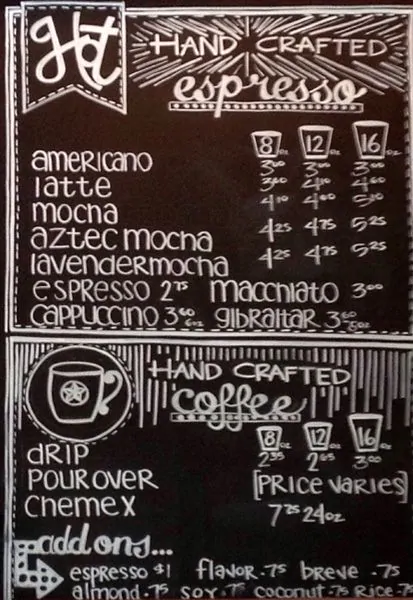 Hot HAND CRAFTED
espresso
8oz 12oz 16oz
americano 3.00 3.00 3.00
latte 3.60 4.10 4.60
mocha 4.10 4.60 5.10
aztec mocha 4.25 4.75 5.25
lavender mocha 4.25 4.75 5.25
espresso 2.75 macchiato 3.00
cappuccino 3.60 6oz gibraltar 3.60 5oz
HAND CRAFTED
coffee
8oz 12oz 16oz
drip 2.35 2.65 3.00
pour over [PRICE VARIES]
chemex 7.25 24oz
add ons...
espresso $1 flavor .75 breve .75
almond .75 soy .75 coconut .75 rice .7